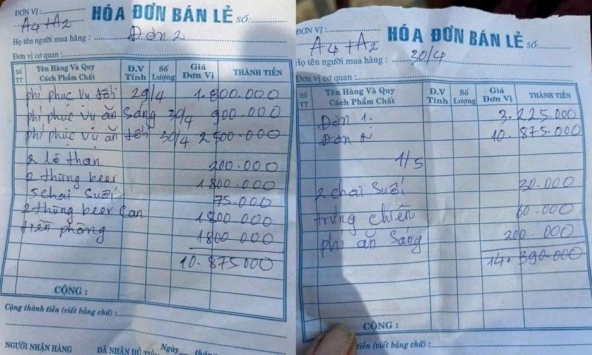 ĐƠN VỊ :
HÓA ĐƠN BÁN LẺ
Số:
A4+A2
Họ tên người mua hàng :
Đơn 2
Đơn vị cơ quan :
Số TT
Tên Hàng Và Quy Cách Phẩm Chất
Đ.V Tính
Số Lượng
Giá Đơn Vị
THÀNH TIỀN
phí phục vụ tối 29/4 1.800.000
phí phục vụ ăn sáng 30/4 900 000
phí phục vụ ăn tối 30/4 2 500 000
2 lò than 200.000
2 thùng beer 1800 000
5 chai suối 75.000
2 thùng beer can 1800 000
tiền phòng 1800 000
10.875 000
CỘNG :
Cộng thành tiền (viết bằng chữ) :
Ngày
NGƯỜI NHẬN HÀNG
ĐÃ NHẬN ĐỦ
ĐƠN VỊ :
HÓA ĐƠN BÁN LẺ
Số:
A4+A2
Họ tên người mua hàng :
30/4
Đơn vị cơ quan :
Số TT
Tên Hàng Và Quy Cách Phẩm Chất
Đ.V Tính
Số Lượng
Giá Đơn Vị
THÀNH TIỀN
Đơn 1. 3.225.000
Đơn 2 10.875 000
1/5
2 chai suối 30.000
trứng chiên 60.000
phí ăn sáng 200.000
14.390 000
CỘNG :
tiền (viết bằng chữ) :